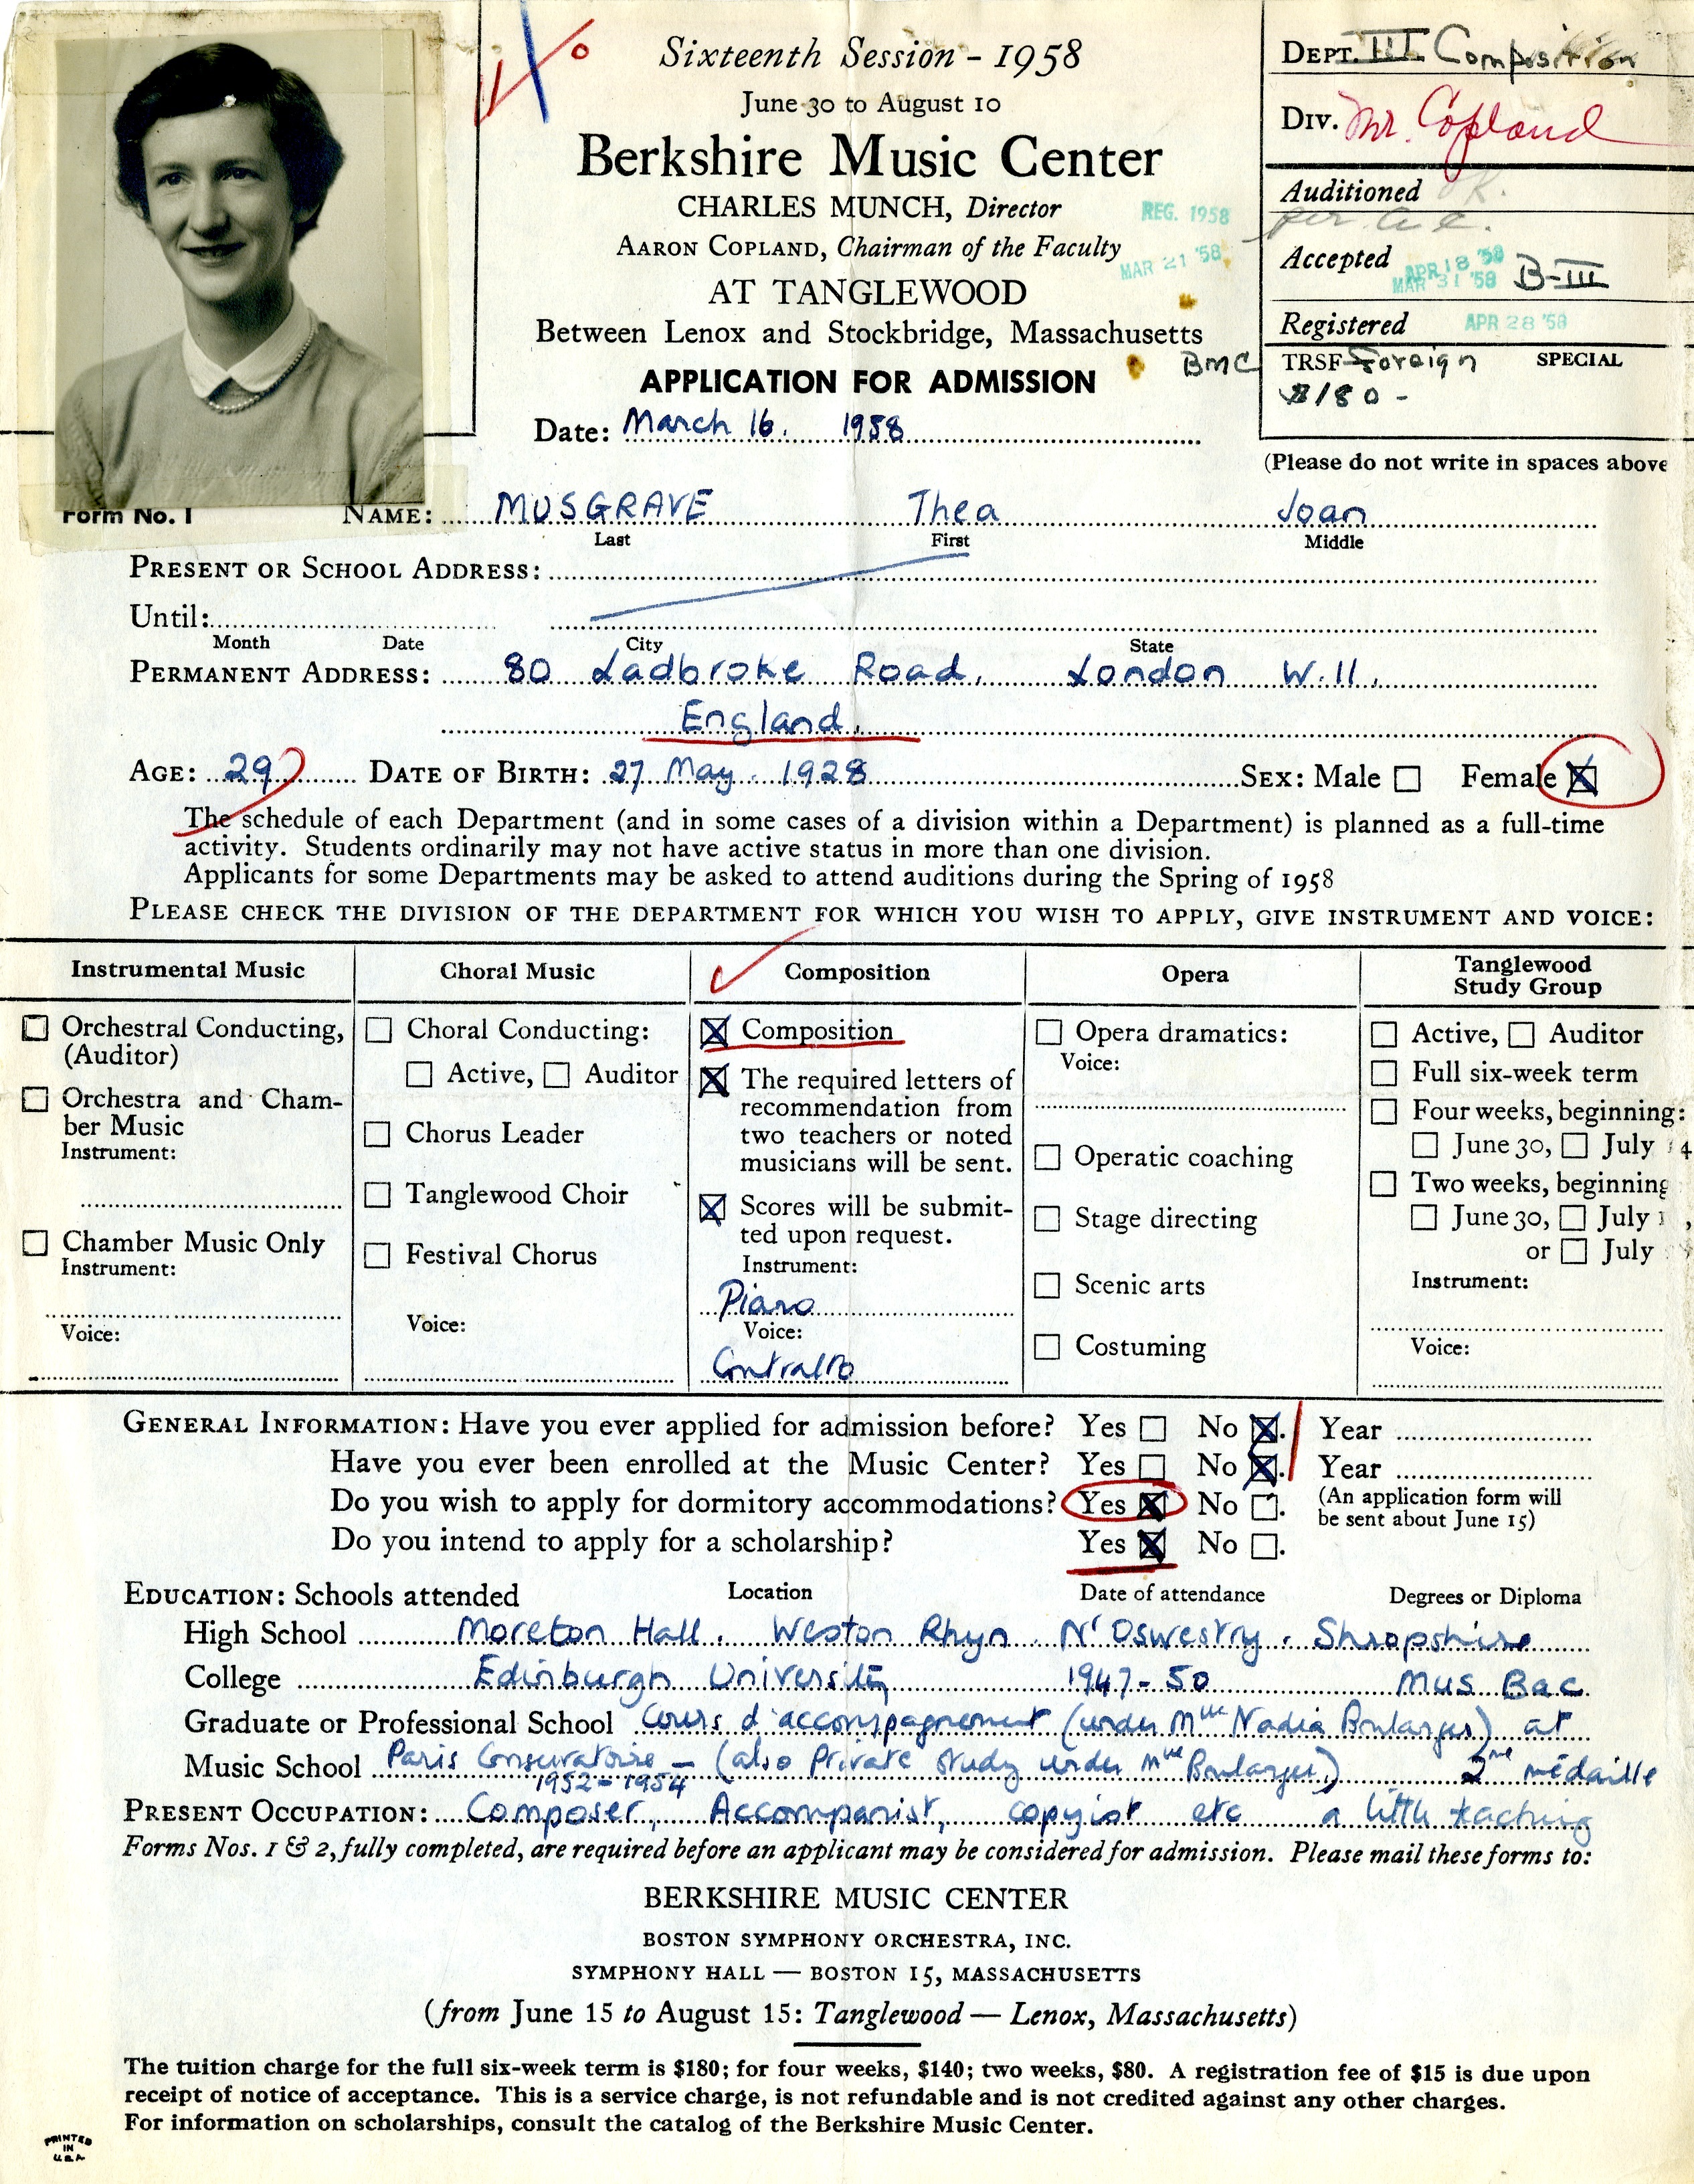 Sixteenth Session - 1958
June 30 to August 10
Berkshire Music Center
CHARLES MUNCH, Director
AARON COPLAND, Chairman of the Faculty
AT TANGLEWOOD
Between Lenox and Stockbridge, Massachusetts
APPLICATION FOR ADMISSION
Date: March 16. 1958
REG. 1958
MAR 21 '58
BMC
DEPT. III Composition
DIV. Mr. Copland
Auditioned OK.
per A.C.
Accepted APR 18 '58
MAR 31 '58 B-III
Registered APR 28 '58
TRSF Foreign SPECIAL
$180-
(Please do not write in spaces above
Form No. 1 NAME: MUSGRAVE Thea Joan
Last First Middle
PRESENT OR SCHOOL ADDRESS:
Until:
Month Date City State
PERMANENT ADDRESS: 80 Ladbroke Road, London W.11,
England.
AGE: 29 DATE OF BIRTH: 27 May. 1928 SEX: Male Female
The schedule of each Department (and in some cases of a division within a Department) is planned as a full-time
activity. Students ordinarily may not have active status in more than one division.
Applicants for some Departments may be asked to attend auditions during the Spring of 1958
PLEASE CHECK THE DIVISION OF THE DEPARTMENT FOR WHICH YOU WISH TO APPLY, GIVE INSTRUMENT AND VOICE:
Instrumental Music
Orchestral Conducting,
(Auditor)
Orchestra and Cham-
ber Music
Instrument:
Chamber Music Only
Instrument:
Voice:
Choral Music
Choral Conducting:
Active, Auditor
Chorus Leader
Tanglewood Choir
Festival Chorus
Voice:
Composition
Composition
The required letters of
recommendation from
two teachers or noted
musicians will be sent.
Scores will be submit-
ted upon request.
Instrument:
Piano
Voice:
Contralto
Opera
Opera dramatics:
Voice:
Operatic coaching
Stage directing
Scenic arts
Costuming
Tanglewood
Study Group
Active, Auditor
Full six-week term
Four weeks, beginning:
June 30, July 14
Two weeks, beginning
June 30, July
or July
Instrument:
Voice:
GENERAL INFORMATION: Have you ever applied for admission before? Yes No . Year
Have you ever been enrolled at the Music Center? Yes No . Year
Do you wish to apply for dormitory accommodations? Yes No . (An application form will
be sent about June 15)
Do you intend to apply for a scholarship? Yes No .
EDUCATION: Schools attended Location Date of attendance Degrees or Diploma
High School Moreton Hall. Weston Rhyn. Nr Oswestry. Shropshire
College Edinburgh University 1947-50 Mus Bac.
Graduate or Professional School Cours d'accompagnement (under Mlle Nadia Boulanger) at
Music School Paris Conservatoire - (also Private study under Mlle Boulanger) 2me médaille
1952-1954
PRESENT OCCUPATION: Composer, Accompanist, copyist etc a little teaching
Forms Nos. 1 & 2, fully completed, are required before an applicant may be considered for admission. Please mail these forms to:
BERKSHIRE MUSIC CENTER
BOSTON SYMPHONY ORCHESTRA, INC.
SYMPHONY HALL — BOSTON 15, MASSACHUSETTS
(from June 15 to August 15: Tanglewood — Lenox, Massachusetts)
The tuition charge for the full six-week term is $180; for four weeks, $140; two weeks, $80. A registration fee of $15 is due upon
receipt of notice of acceptance. This is a service charge, is not refundable and is not credited against any other charges.
For information on scholarships, consult the catalog of the Berkshire Music Center.
PRINTED
IN
U.S.A.